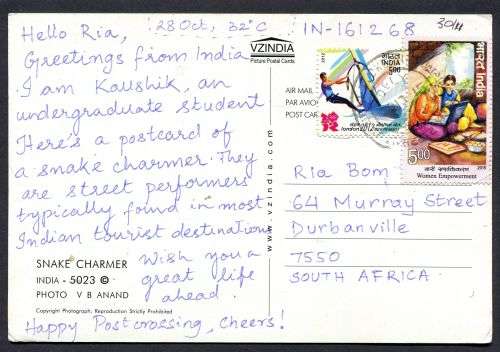 Hello Ria,
28 Oct, 32°C
IN-161268
30/11
Greetings from India
I am Kaushik, an
undergraduate student
Here's a postcard of
a snake charmer. They
are street performers
typically found in most
Indian tourist destinations
Wish you a
great life
ahead.
Happy Postcrossing, Cheers!
SNAKE CHARMER
INDIA - 5023 ©
PHOTO V B ANAND
Copyright Photograph, Reproduction Strictly Prohibited
VZINDIA
Picture Postal Cards
www.vzindia.com
AIR MAIL
PAR AVIO
POST CAR
भारत
INDIA
500
2012
london 2012
भारत India
5.00
2015
नारी सशक्तिकरण
Women Empowerment
Ria Bom
64 Murray Street
Durbanville
7550
SOUTH AFRICA